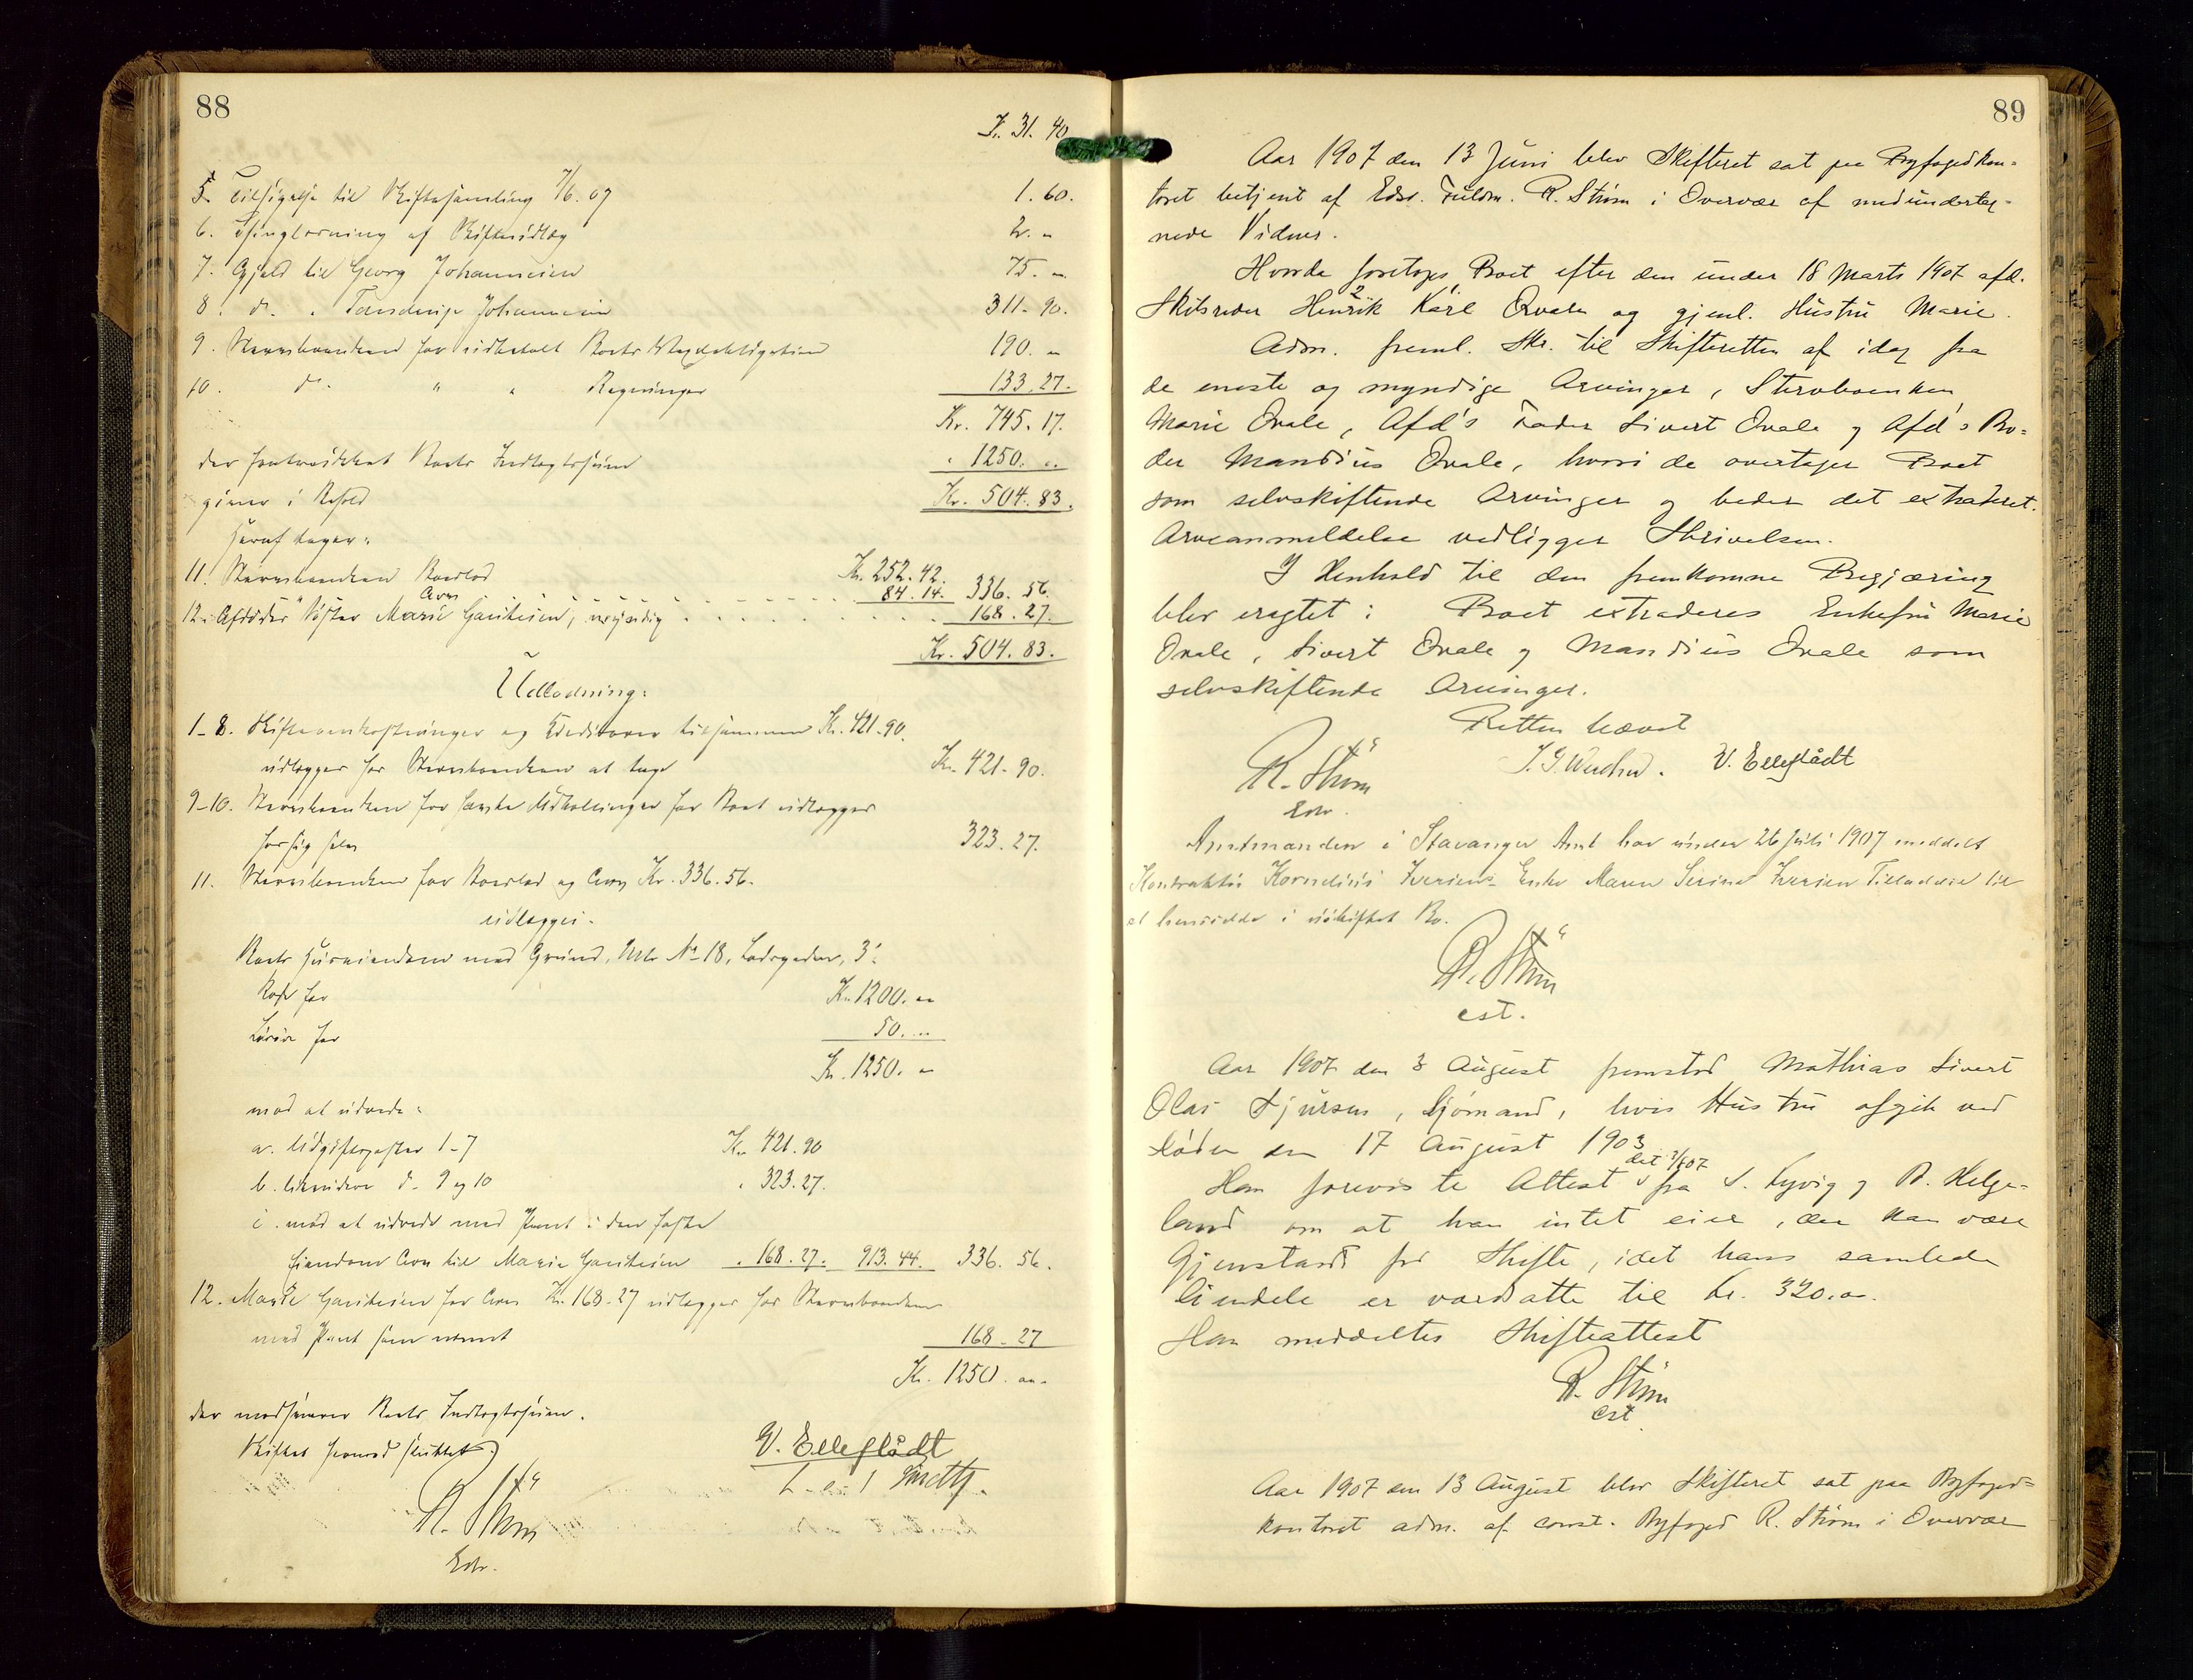 88
Kr. 31. 40
5. Tilsigelse til Skiftesamling 7/6. 07 1. 60.
6. Thinglæsning af Skifteudlæg 2. "
7. Gjæld til Georg Johannesen 75. "
8. do. " Johannesen 311. 90.
9. Stervboenken for udbetalt Boets 190. "
10. do. " " Regninger 133. 27.
Kr. 745. 17.
der fratrukket Boets Indtægtssum " 1250. "
giver i Behold Kr. 504. 83.
heraf tager:
11. Stervboenken Boeslod Kr. 252. 42.
Arv 84. 14. 336. 56.
12. Afdødes Søster Marie 168. 27.
Kr. 504. 83.
Udlodning:
1-8. Skifteomkostninger og Kreditorer tilsammen Kr. 421. 90.
udlægges for Stervboenken at tage Kr. 421. 90.
9-10. Stervboenken for hendes Udbetalinger for Boet udlægges
for sig selv 323. 27.
11. Stervboenken for Boeslod og Arv Kr. 336. 56.
udlægges.
Boets Huseiendom med Grund, Mtr No 18, 3'
Rode for Kr. 1200. "
Løsøre for 50. "
Kr. 1250. "
mod at udrede:
a. Udgiftsposter 1-7 Kr. 421. 90
b. likvidere do 9 og 10 " 323. 27.
c. mod at udrede med Pant i den faste
Eiendom Arv til Marie " 168. 27. 913. 44. 336. 56.
12. Marie for Arv Kr. 168. 27 udlægges hos Stervboenken
med Pant som nævnt 168. 27
Kr. 1250. "
der modsvarer Boets Indtægtssum.
Skiftet hermed sluttet
V. Elleflådt
R. Strøm
Edsv.
89
Aar 1907 den 13 Juni blev Skifteret sat paa Byfogedkon-
toret betjent af Edsv. Fuldm. R. Strøm i Overvær af medunderteg-
nede Vidner.
Hvorda foretoges Boet efter den under 18 Marts 1907 afd.
Skibsreder Henrik Karl Qvale og gjenl. Hustru Marie.
Adm. freml. Skr. til Skifteretten af idag fra
de eneste og myndige Arvinger, Stervboenken
Marie Qvale, Afd's Fader Sivert Qvale og Afd's Bro-
der Mandius Qvale, hvori de overtager Boet
som selvskiftende Arvinger og beder det extraderet.
Arveanmeldelse vedligger Skrivelsen.
I Henhold til den fremkomne Begjæring
blev eragtet: Boet extraderes Enkefru Marie
Qvale, Sivert Qvale og Mandius Qvale som
selvskiftende Arvinger.
Retten hævet
R. Strøm V. Elleflådt
Edsv.
Amtmanden i Stavanger Amt har under 26 Juli 1907 meddelt
Kornelius Iversens Enke Maren Serine Iversen Tilladelse til
at hensidde i uskiftet Bo.
R. Strøm
cst.
Aar 1907 den 3 August fremstod Mathias Sivert
Olai Sjursen, Sjømand, hvis Hustru afgik ved
Døden den 17 August 1903
Han foreviste Attest dat 2/8 07 fra S. Lyvig og B. Helge-
land om at han intet eier, der kan være
Gjenstand for Skifte, idet hans samlede
Eiendele er værdsatte til Kr. 320. "
Han meddeltes Skifteattest
R. Strøm
cst
Aar 1907 den 13 August blev Skifteret sat paa Byfoged-
kontoret adm. af const. Byfoged R. Strøm i Overvær